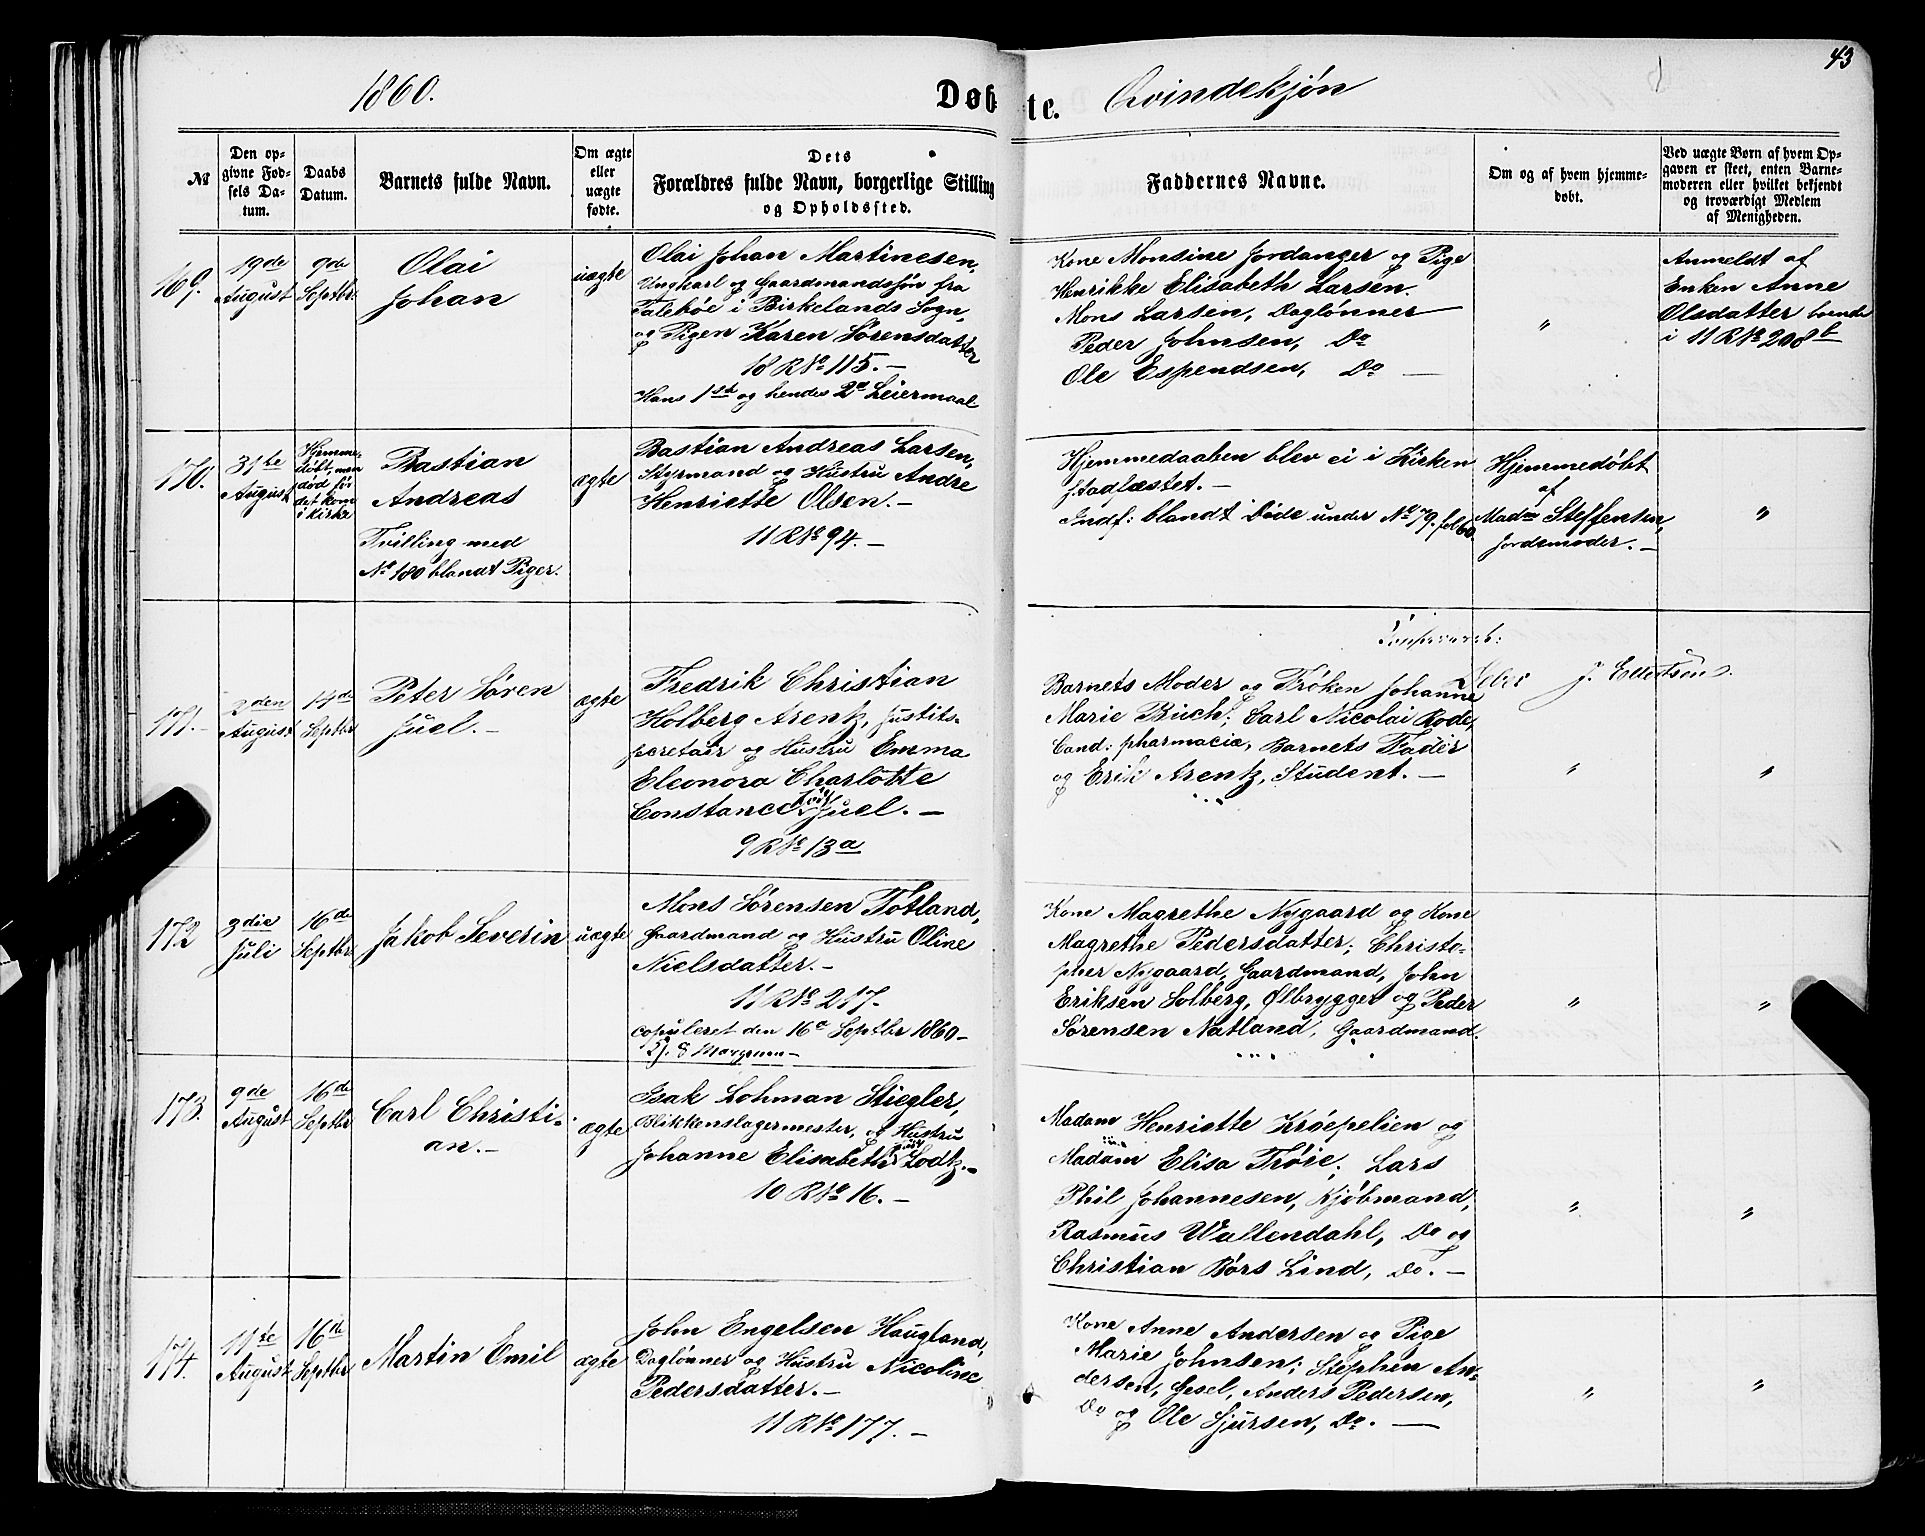 43
1860.
Døbte.
Qvindekjøn
№
Den op-
givne Fød-
sels Da-
tum.
Daabs
Datum.
Barnets fulde Navn.
Om ægte
eller
uægte
fødte.
Dets
Forældres fulde Navn, borgerlige Stilling
og Opholdssted.
Faddernes Navne.
Om og af hvem hjemme-
døbt.
Ved uægte Børn af hvem Op-
gaven er skeet, enten Barne-
moderen eller hvilket bekjendt
og troværdigt Medlem
af Menigheden.
169.
19de
August
9de
Septbr.
Olai
Johan
uægte
Olai Johan Martinesen,
Ungkarl og Gaardmandssøn fra
i Birkelands Sogn,
og Pigen Karen Sørensdatter
18 R No 115. —
Hans 1ste og hendes 2d Leiermaal
Kone Monsine Jordanger og Pige
Henrikke Elisabeth Larsen.
Mons Larsen, Daglønner
Peder Johnsen, Do
Ole Espendsen, Do —
"
Anmeldt af
Enken Anne
Olsdatter boende
i 11 R No 208 b
170.
31te
August
Hjemme-
døbt, men
død før
det kom
i Kirke
Bastian
Andreas
Tvilling med
No 180 blandt Piger.
ægte
Bastian Andreas Larsen,
Styrmand og Hustru Andre
Henriette Olsen. —
11 R No 94. —
Hjemmedaaben blev ei i Kirken
stadfæstet. —
Indf: blandt Døde under No 79. fol 60.
Hjemmedøbt
af
Madm Steffensen,
Jordemoder. —
"
171. —
2den
August
14de
Septbr
Peter Søren
Juel. —
ægte
Fredrik Christian
Holberg Arentz, Justits-
og Hustru Emma
Eleonora Charlotte
Constance født Juel. —
9 R No 13a
J. Ellertsen.
Barnets Moder og Frøken Johanne
Marie Buch; Carl Nicolai Rode,
Cand: pharmacia, Barnets Fader
og Erik Arentz, Student. —
"
"
172
3die
Juli
16de
Septbr.
Jakob Severin
uægte
Mons Sørensen Tøtland,
Gaardmand og Hustru Oline
Nielsdatter. —
11 R No 217.
copuleret den 16d Septbr 1860 —
Kl. 8 Morgenen —
Kone Magrethe Nygaard og Kone
Magrethe Pedersdatter; Christo-
pher Nygaard, Gaardmand, John
Eriksen Solberg, Ølbrygger og Peder
Sørensen Natland, Gaardmand.
"
"
173.
9de
August
16de
Septbr
Carl Christi-
an. —
ægte
Isak Lohman Stiegler,
Blikkenslagermester, og Hustru
Johanne Elisabeth født Lodtz. —
10 R No 16. —
Madam Henriette Krøepelien og
Madam Elisa Trøie; Lars
Phil Johannesen, Kjøbmand,
Rasmus Wallendahl, Do og
Christian Børs Lind, Do. —
"
"
174.
11te
August
16de
Septbr
Martin Emil
ægte
John Engelsen Haugland,
Daglønner og Hustru Nicoline
Pedersdatter. —
11 R No 177. —
Kone Anne Andersen og Pige
Marie Johnsen; Stephen An-
dersen, Gesel, Anders Pedersen,
Do og Ole Sjursen, Do. —
"
"